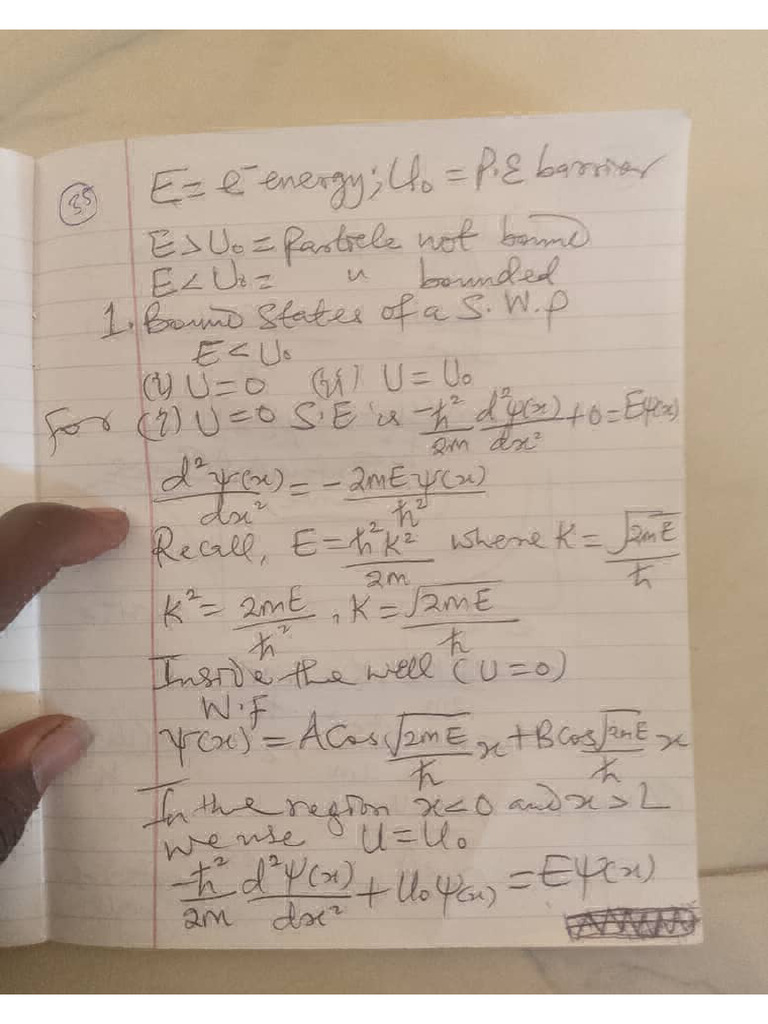 35
E = e⁻ energy; U₀ = P.E barrier
E > U₀ = Particle not bound
E < U₀ = " bounded
1. Bound States of a S.W.P
E < U₀
(i) U = 0 (ii) U = U₀
For (i) U = 0 S.E is -ħ²/2m d²ψ(x)/dx² + 0 = Eψ(x)
d²ψ(x)/dx² = -2mEψ(x)/ħ²
Recall, E = ħ²k²/2m where K = √2mE/ħ
K² = 2mE/ħ², K = √2mE/ħ
Inside the well (U = 0)
W.F
ψ(x) = A Cos √2mE/ħ x + B cos √2mE/ħ x
In the region x < 0 and x > L
we use U = U₀
-ħ²/2m d²ψ(x)/dx² + U₀ψ(x) = Eψ(x)